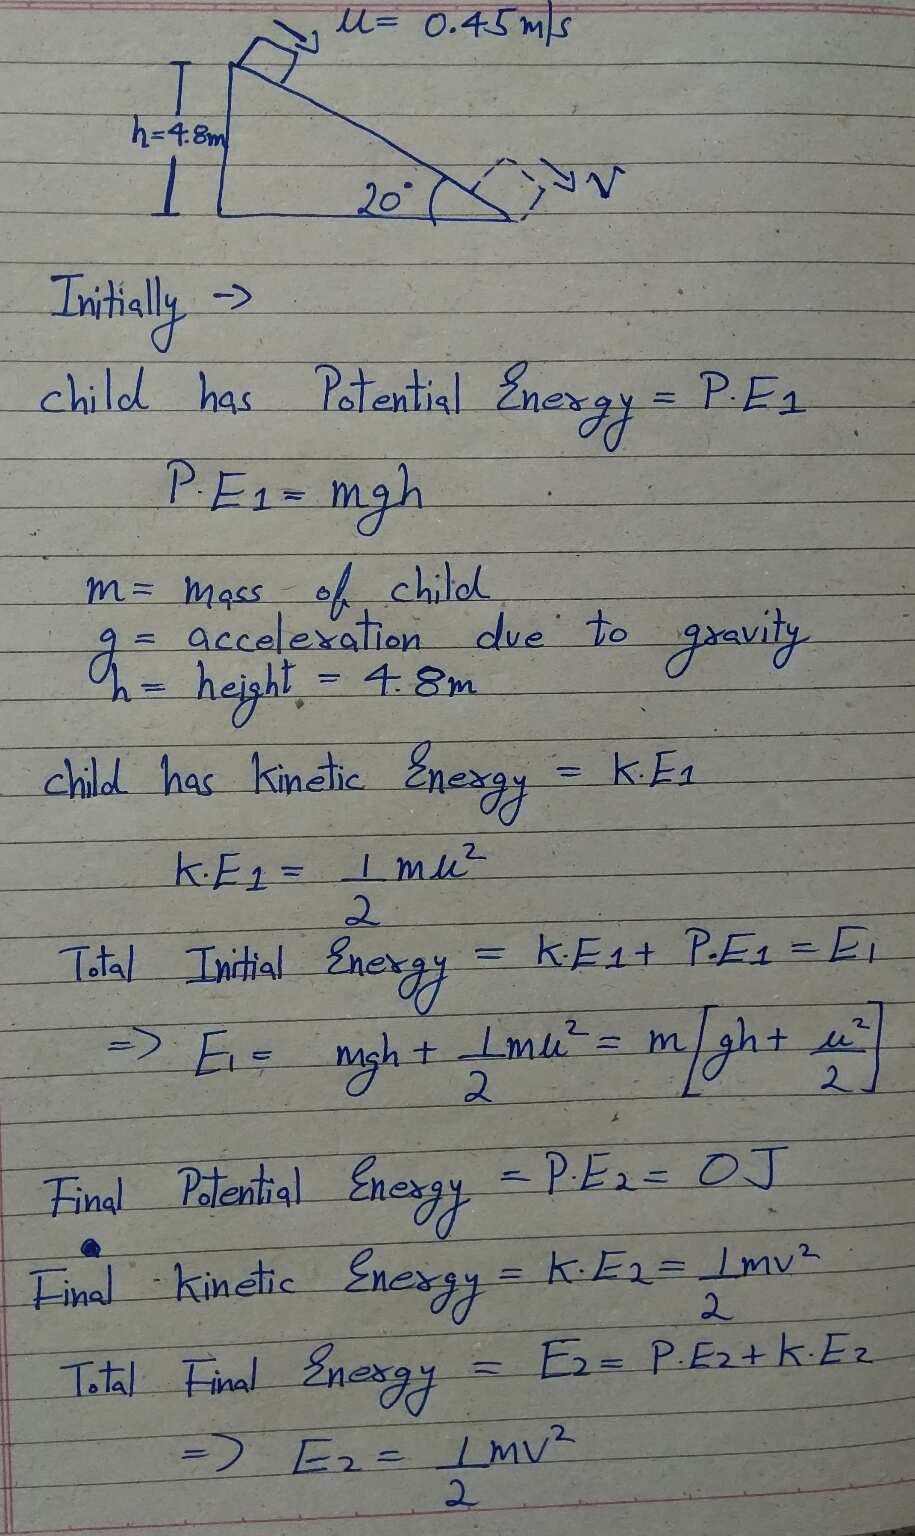 u = 0.45 m/s
h=4.8m
20°
v
Initially →
child has Potential Energy = P.E1
P.E1 = mgh
m = mass of child
g = acceleration due to gravity
h = height = 4.8m
child has kinetic Energy = K.E1
K.E1 = 1/2 mu²
Total Initial Energy = K.E1 + P.E1 = E1
=> E1 = mgh + 1/2 mu² = m[gh + u²/2]
Final Potential Energy = P.E2 = 0 J
Final kinetic Energy = K.E2 = 1/2 mv²
Total Final Energy = E2 = P.E2 + K.E2
=> E2 = 1/2 mv²